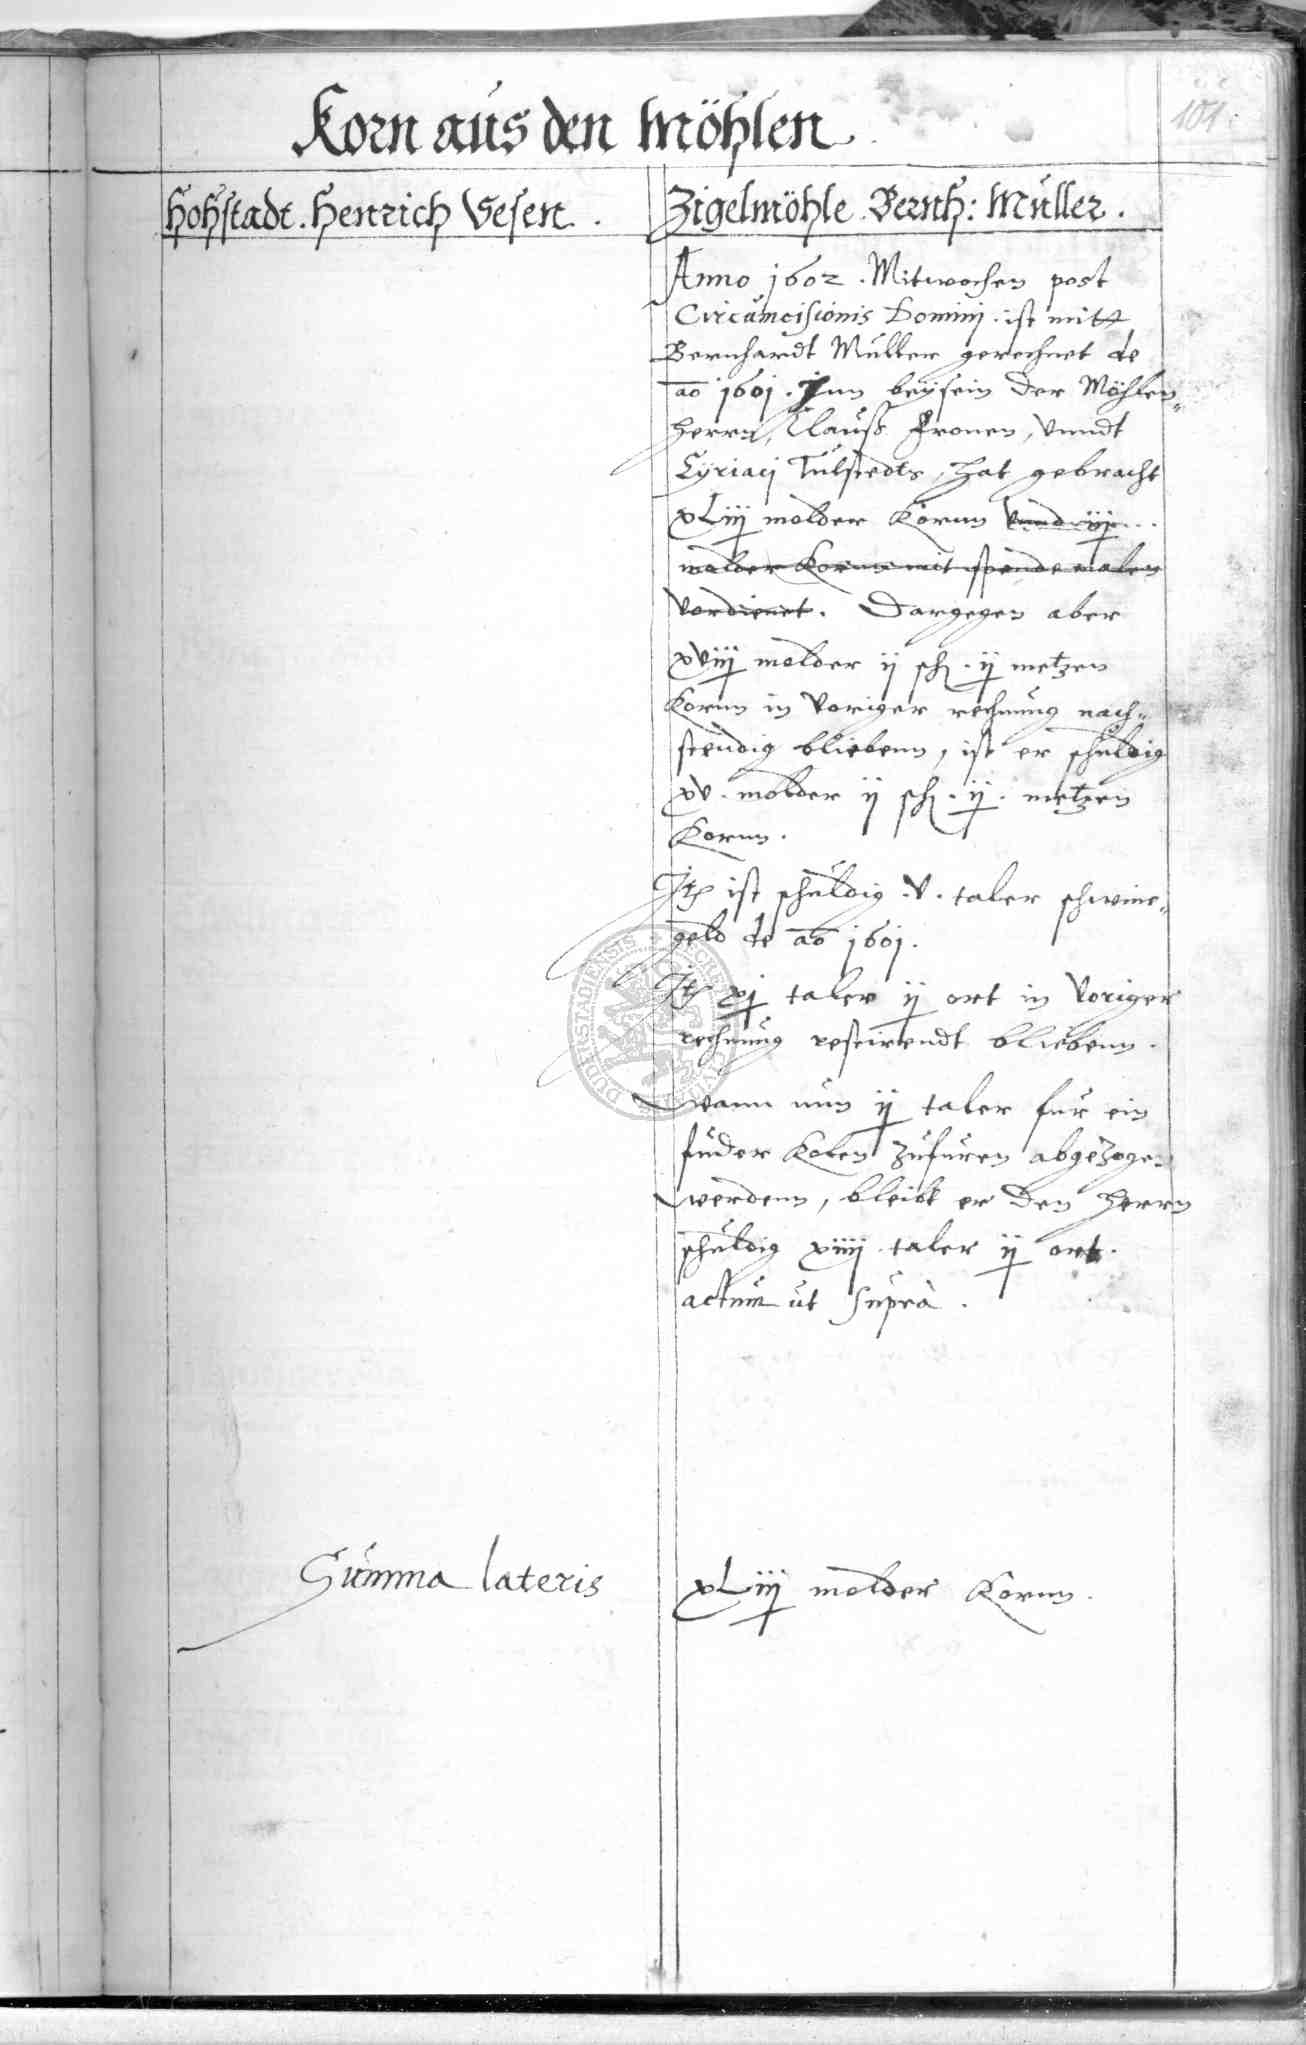 101
Korn aus den Möhlen
Hohstadt. Henrich Vesen.
Zigelmöhle Bernh: Müller.
Anno 1602. Mitwochen post
Circumcisionis Domini. ist mitt
Bernhardt Müller gerechnet de
ao 1601. Inn beysein der Möhlen„
herrn, Clauß Fronen, vnndt
Cyriaci Tulstedts, hat gebracht
xLiij molder Kornn vnnd iij
molder Korns mit spende malen
vordienet. Dargegen aber
xviij molder ij sch. ij metzen
Kornn in voriger rechnung nach„
stendig bliebenn, ist er schuldig
xv. molder ij sch. ij. metzen
Kornn.
It ist schuldig .v. taler schwine„
geld de ao 1601.
It xj taler ij ort in voriger
rechnung restirendt bliebenn.
wann nun ij taler fur ein
fuder Kolen zufuren abgezogen
werdenn, bleibt er den herrn
schuldig xiiij taler ij ort.
actum ut supra.
Summa lateris
xLiij molder Kornn.